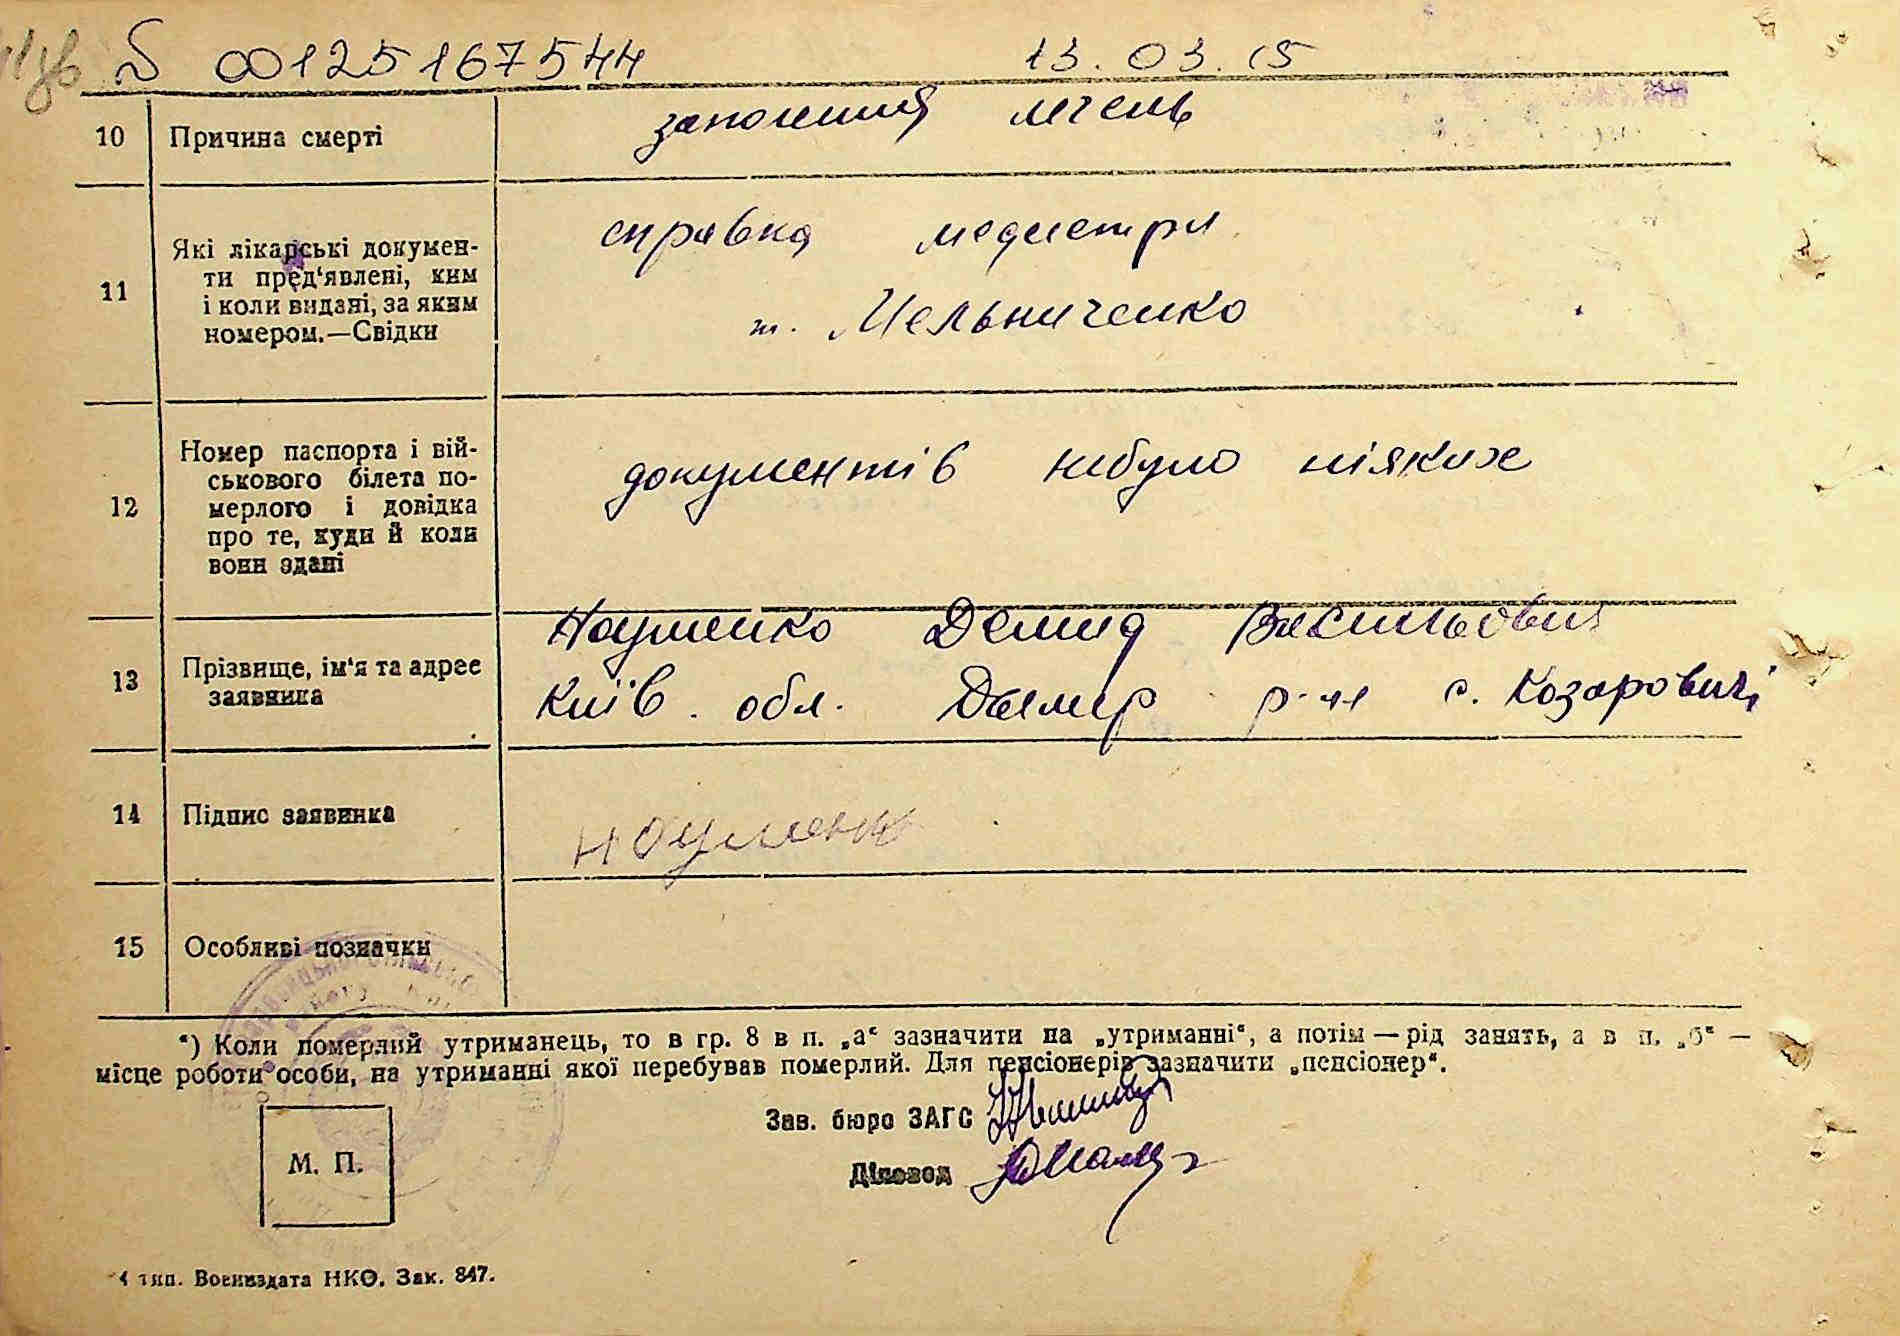 00125167544 13.03.15
10 Причина смерті заполения легень
11 Які лікарські документи пред‘явлені, ким і коли видані, за яким номером.—Свідки
справка медсестри
т. Мельниченко
12 Номер паспорта і військового білета померлого і довідка про те, куди й коли вони здані
документів небуло ніяких
13 Прізвище, ім‘я та адрес заявника
Науменко Демид Васильович
Київ. обл. Дымер р-н с. Козаровичі
14 Підпис заявника Науменко
15 Особливі позначки
*) Коли померлий утриманець, то в гр. 8 в п. „а“ зазначити на „утриманні“, а потім — рід занять, а в п. „б“ —
місце роботи особи, на утриманні якої перебував померлий. Для пенсіонерів зазначити „пенсіонер“.
Зав. бюро ЗАГС
Діловод
М. П.
тип. Воениздата НКО. Зак. 847.